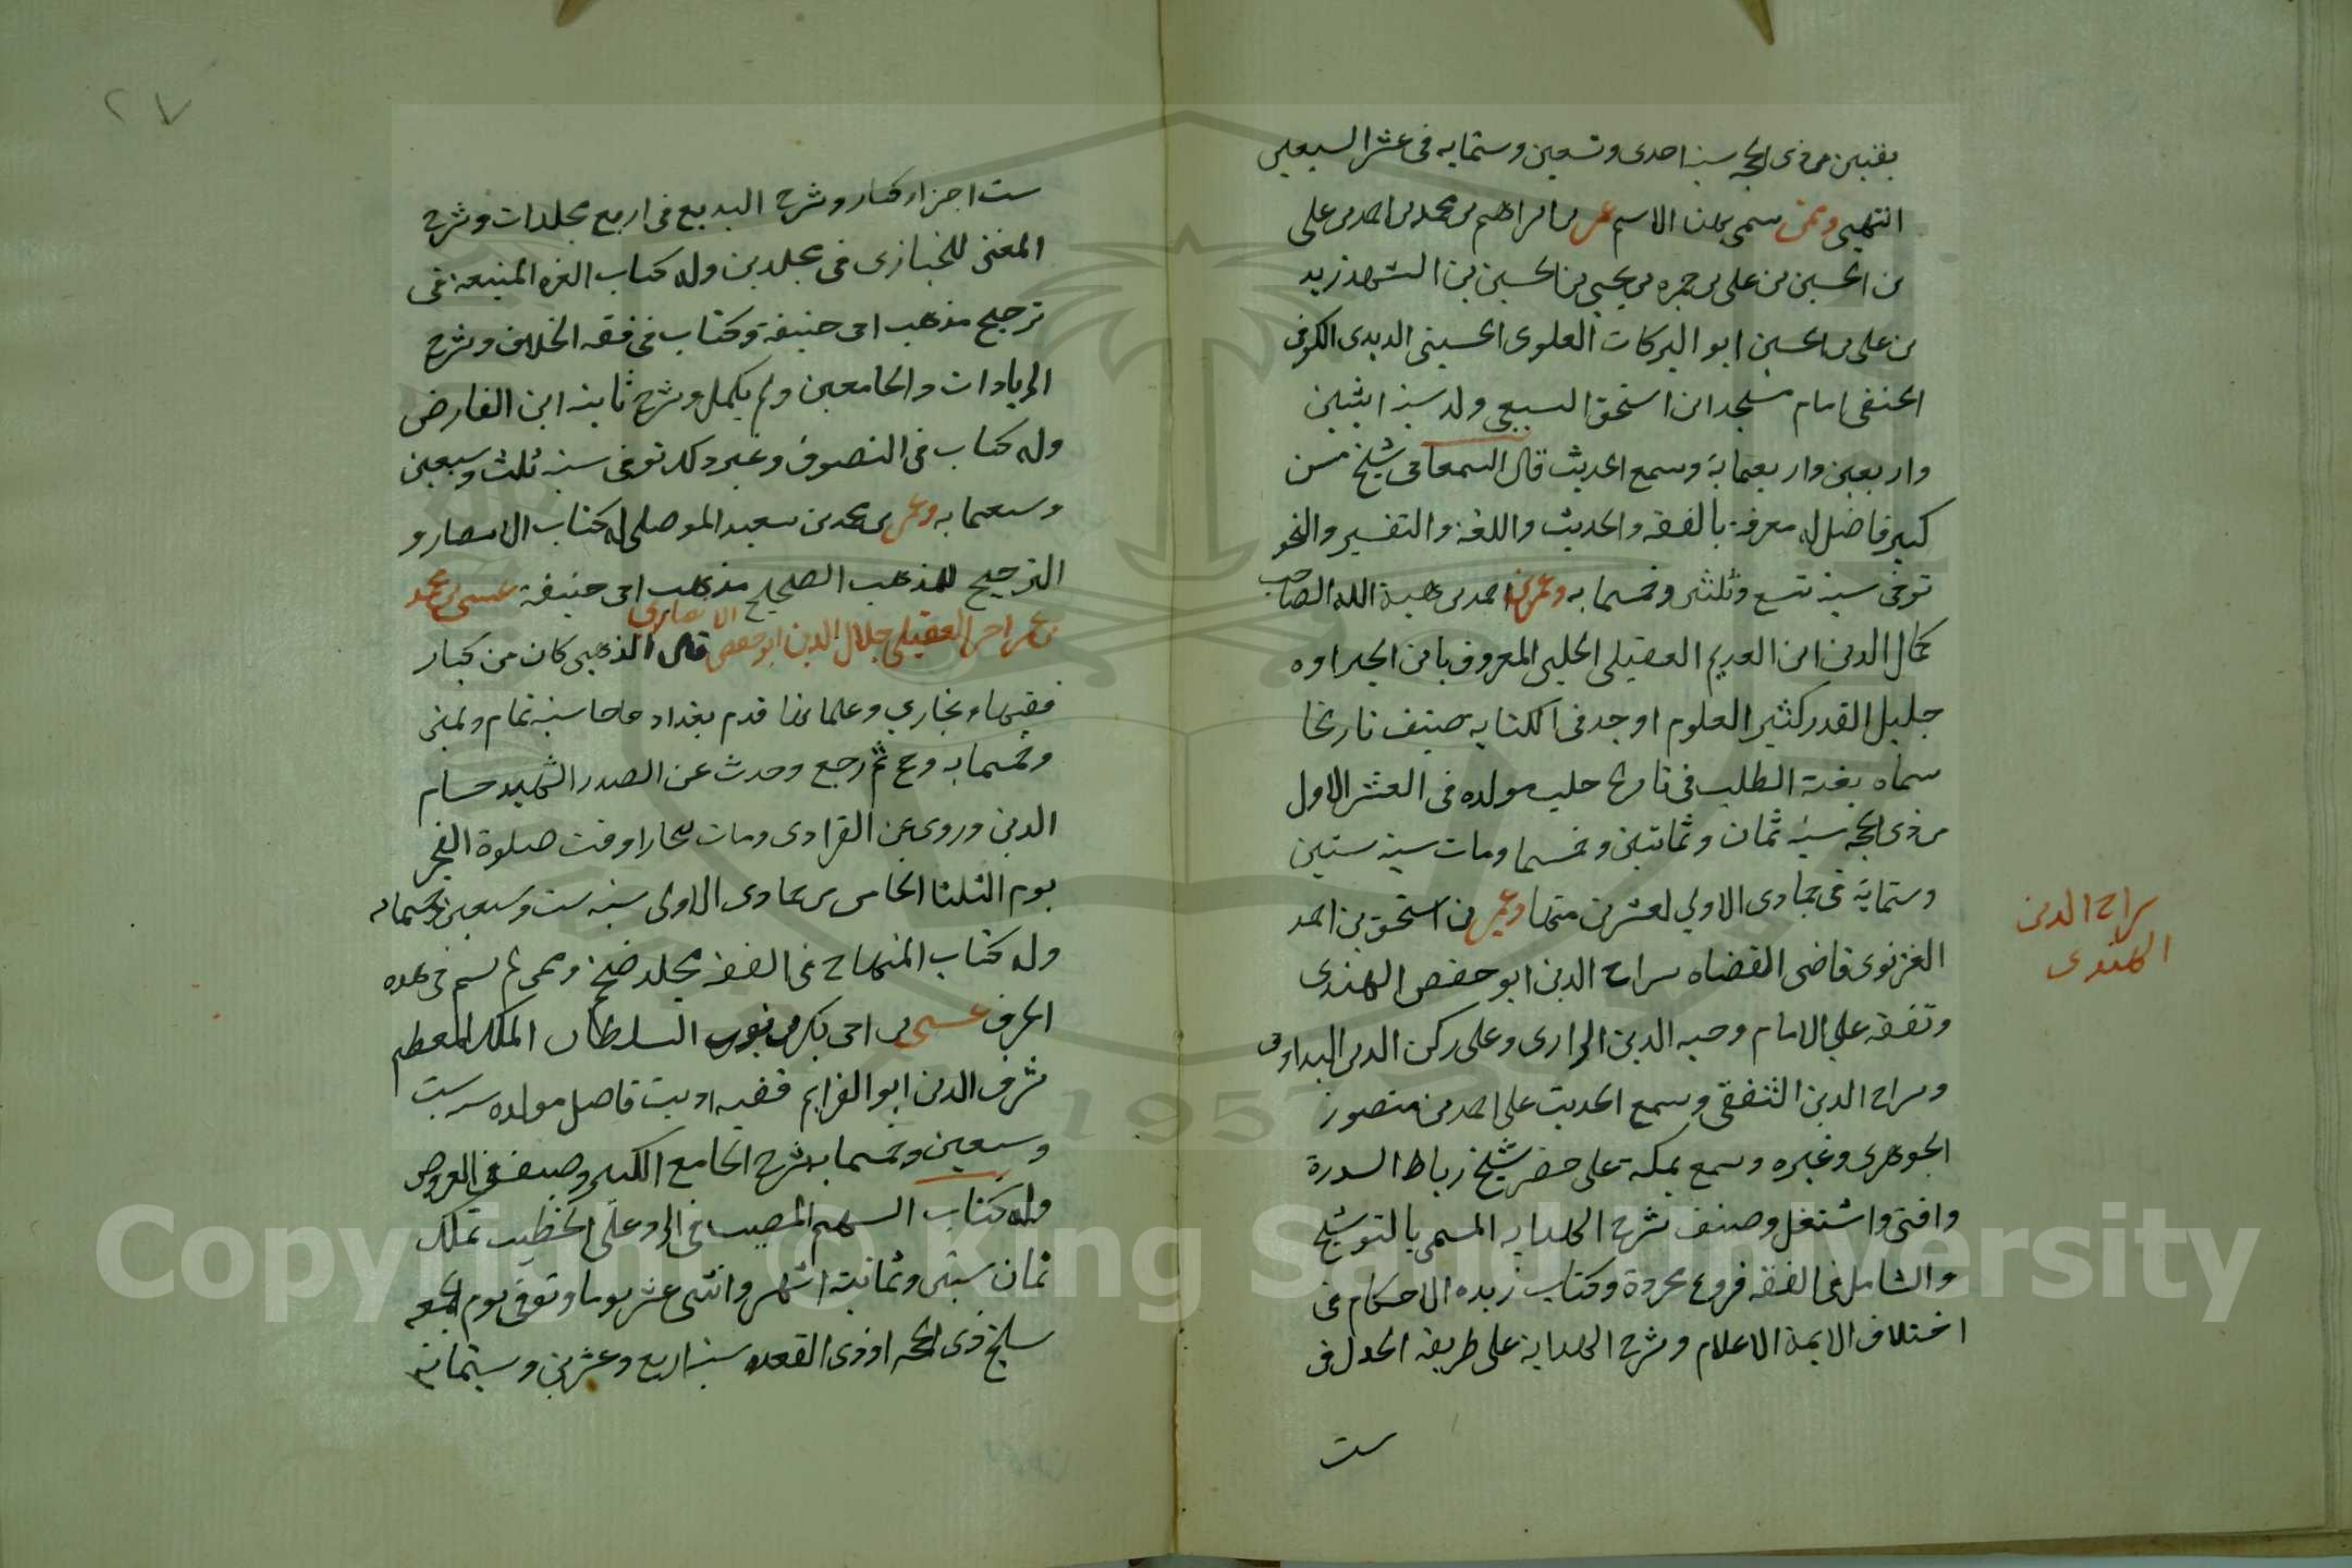 بقين من ذى الحجه سنة احدى وتسعين وستمايه فى عشر السبعين
انتهى وممن سمى بهذا الاسم عمر بن ابراهيم بن محمد بن احمد بن على
بن الحسين بن على بن حمزه بن يحيى بن الحسين بن الشهيد زيد
بن على بن الحسين ابو البركات العلوى الحسينى الديدى الكوفى
الحنفى امام مسجد ابن اسحق السبيعى ولد سنة اثنين
واربعين واربعمايه وسمع الحديث قال السمعانى شيخ مسن
كبير فاضل له معرفة بالفقه والحديث واللغة والتفسير والنحو
توفى سنة تسع وثلثين وخمسمايه وعمر بن احمد بن هبة الله الصاحب
كمال الدين ابن العديم العقيلى الحلبى المعروف بابن ابى جراده
جليل القدر كثير العلوم اوحد فى الكتابه صنف تاريخا
سماه بغية الطلب فى تاريخ حلب مولده فى العشر الاول
من ذى الحجه سنة ثمان وثمانين وخمسما ومات سنة ستين
وستماية فى جمادى الاولى لعشرين منها وعمر بن اسحق بن احمد
الغزنوى قاضى القضاه سراج الدين ابو حفص الهندى
وتفقه على الامام وجيه الدين الرازى وعلى ركن الدين البداونى
وسراج الدين الثقفى وسمع الحديث على احمد بن منصور
الجوهرى وغيره وسمع بمكة على خضر شيخ رباط السدرة
وافتى واشتغل وصنف شرح الهدايه المسمى بالتوشيح
والشامل فى الفقه فروع مجردة وكتاب زبده الاحكام فى
اختلاف الايمة الاعلام وشرح الهداية على طريقة الجدل فى
ست
سراج الدين
الهندى
٢٧
ست اجزاء كبار وشرح البديع فى اربع مجلدات وشرح
المغنى للخبازى فى مجلدين وله كتاب الغره المنيعة فى
ترجيح مذهب ابى حنيفة وكتاب فى فقه الخلاف وشرح
الزيادات والجامعين ولم يكمل وشرح تايية ابن الفارض
وله كتاب فى التصوف وغير ذلك توفى سنة ثلث وسبعين
وسبعمايه وعمر بن محمد بن سعيد الموصلى له كتاب الانتصار و
الترجيح للمذهب الصحيح مذهب ابى حنيفة عيسى بن محمد
الانصارى
بن عمر احمر العقيلى جلال الدين ابو حفص قال الذهبى كان من كبار
فقهاء بخارى وعلمائها قدم بغداد حاجا سنة ثمان وثمنين
وخمسمايه وحج ثم رجع وحدث عن الصدر الشهيد حسام
الدين وروى عن الفراوى ومات ببخارا وقت صلوة الفجر
يوم الثلثا الخامس من جمادى الاولى سنة ست وسبعين وخمسمايه
وله كتاب المنهاج فى الفقه مجلد ضخم وممن لم يسم فى هذه
الحرف عيسى بن ابى بكر بن ايوب السلطان الملك المعظم
شرف الدين ابو الغزايم فقيه اديب فاضل مولده سنة ست
وسبعين وخمسمايه شرح الجامع الكبير وصنف فى العروض
وله كتاب السهم المصيب فى الرد على الخطيب تملك
ثمان سنين وثمانية اشهر واثنى عشر يوما وتوفى يوم الجمعه
سلخ ذى الحجه او ذى القعده سنة اربع وعشرين وستمائة
Copyright © King Saud University
1957